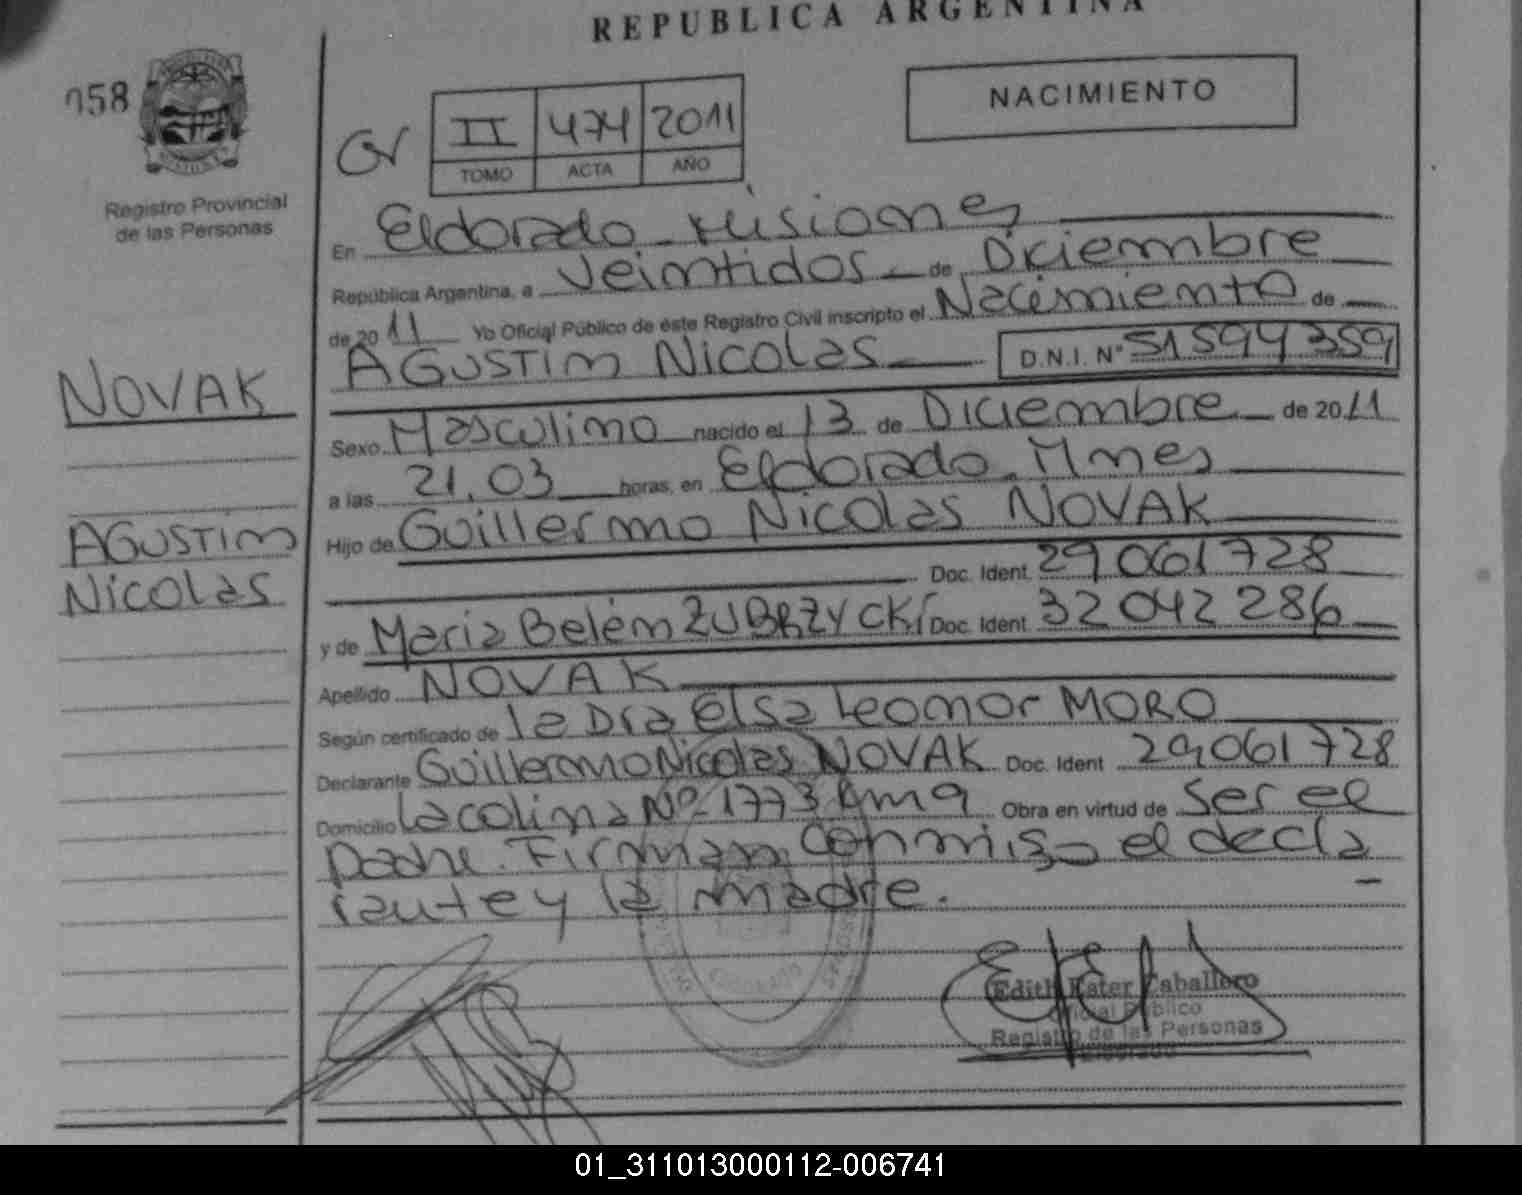 REPUBLICA ARGENTINA
058
NACIMIENTO
II 474 2011
TOMO ACTA AÑO
Registro Provincial
de las Personas
En Eldorado Misiones
República Argentina, a Veintidos de Diciembre
de 2011 Yo Oficial Público de éste Registro Civil inscripto el Nacimiento de
AGUSTIN Nicolas D.N.I. Nº 51594359
NOVAK
Sexo Masculino nacido el 13 de Diciembre de 2011
a las 21,03 horas, en Eldorado Mnes
AGUSTIN
Nicolas
Hijo de Guillermo Nicolas NOVAK
Doc. Ident. 29061728
y de Maria Belén ZUBRZYCKI Doc. Ident. 32042286
Apellido NOVAK
Según certificado de la Dra Elsa Leonor MORO
Declarante Guillermo Nicolas NOVAK Doc. Ident 29061728
Domicilio La colina Nº 1773 km 9 Obra en virtud de ser el
padre. Firman conmigo el decla
rante y la madre.
Edith Kater Caballero
Oficial Público
Registro de las Personas
Eldorado
01_311013000112-006741